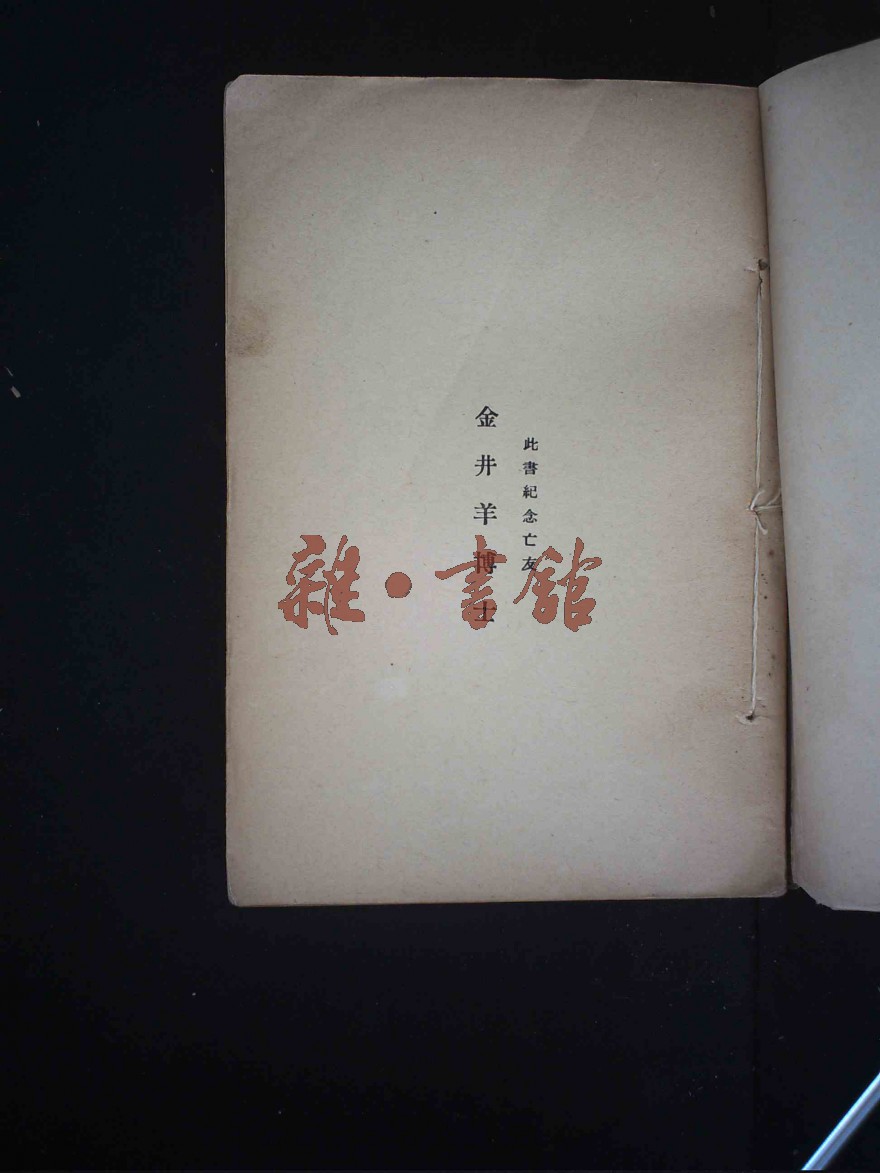 此書紀念亡友
金井羊博士
雜·書館